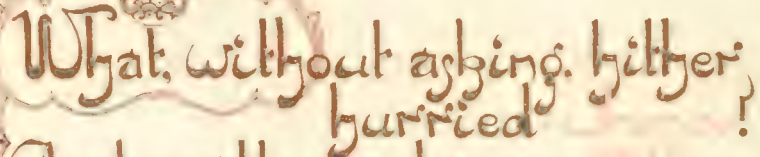 What, without asking, hither
hurried !